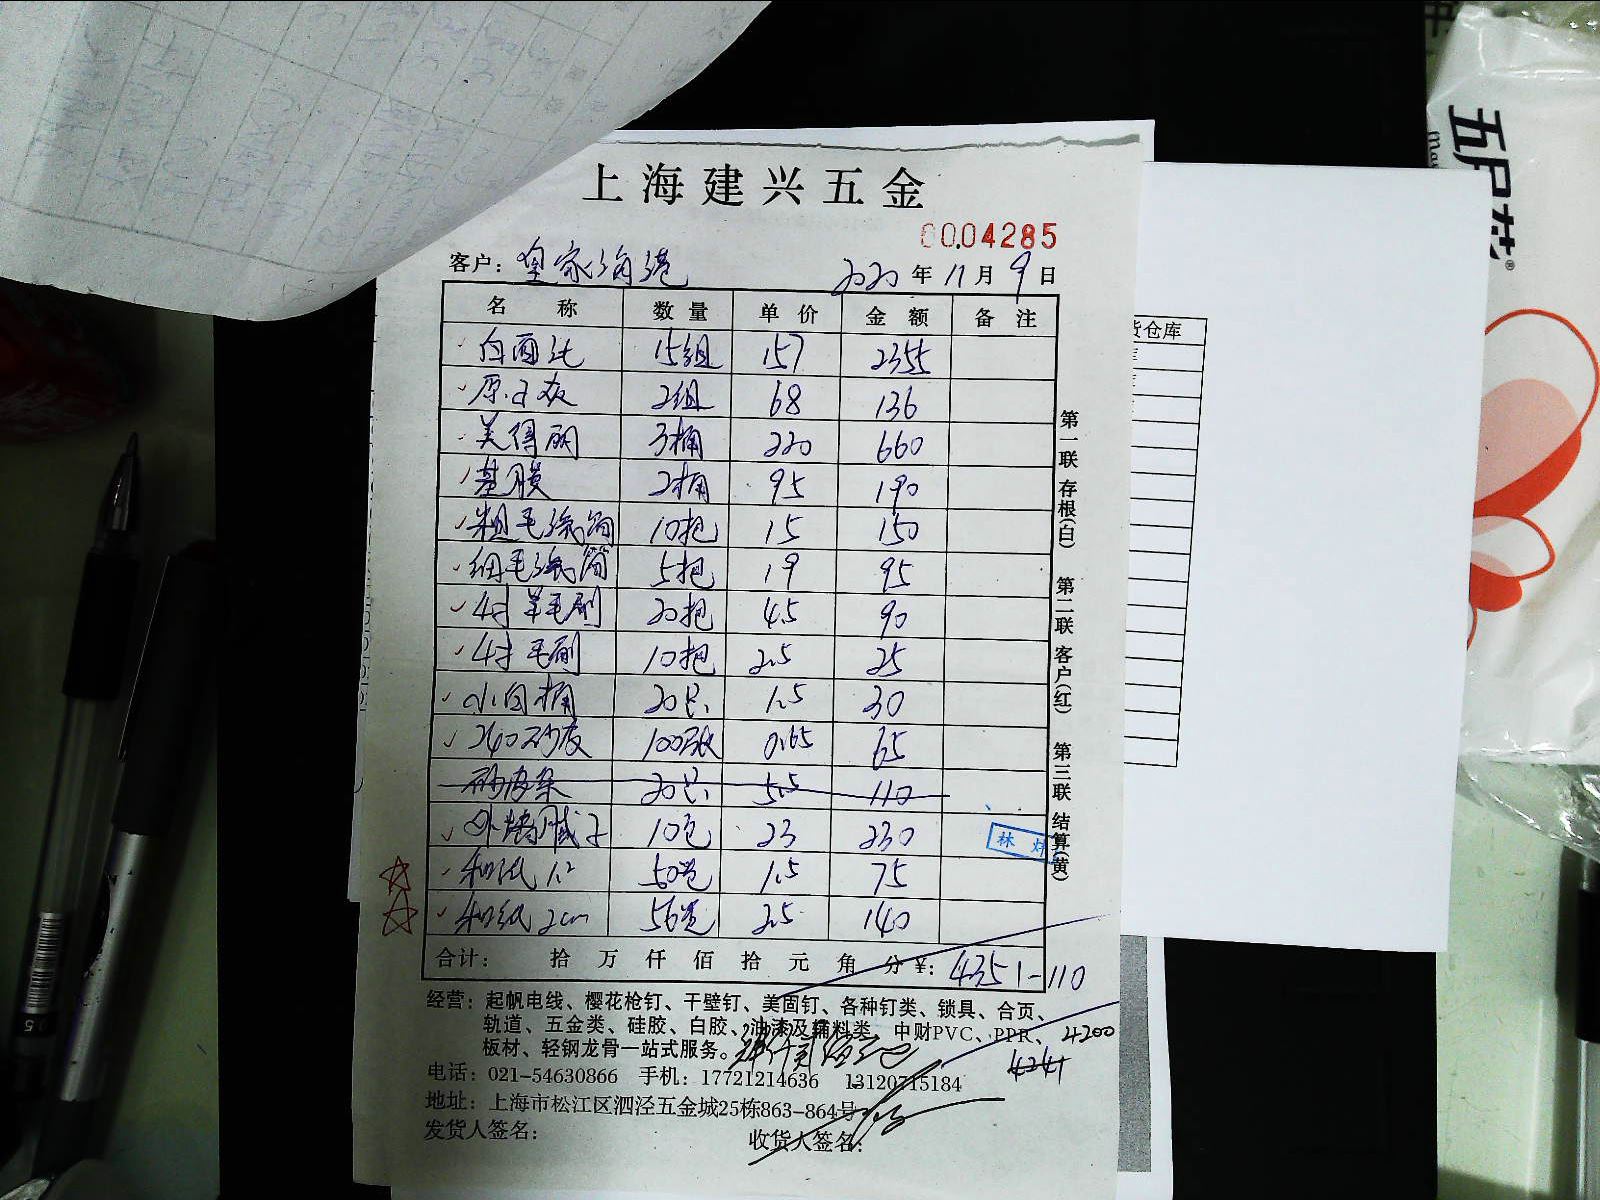 上海建兴五金
0004285
客户：皇家海港 2020年11月9日
名称 数量 单价 金额 备注
白面坭 15组 157 2355
原子灰 2组 68 136
美得丽 3桶 220 660
基膜 2桶 95 190
粗毛滚筒 10把 15 150
细毛滚筒 5把 19 95
4寸羊毛刷 20把 4.5 90
4寸毛刷 10把 2.5 25
小白桶 20只 1.5 30
240砂皮 100张 0.65 65
砂皮架 20只 5.5 110
外墙腻子 10包 23 230
和纸 1.2 50卷 1.5 75
和纸 2cm 56卷 2.5 140
合计： 拾 万 仟 佰 拾 元 角 分 ¥：4351-110
经营：起帆电线、樱花枪钉、干壁钉、美固钉、各种钉类、锁具、合页、
轨道、五金类、硅胶、白胶、油漆及辅料类、中财PVC、PPR、
板材、轻钢龙骨一站式服务。
4200
4241
电话：021-54630866 手机：17721214636 13120715184
地址：上海市松江区泗泾五金城25栋863-864号
发货人签名： 收货人签名：
第一联 存根(白) 第二联 客户(红) 第三联 结算(黄)
林
货仓库
五月花